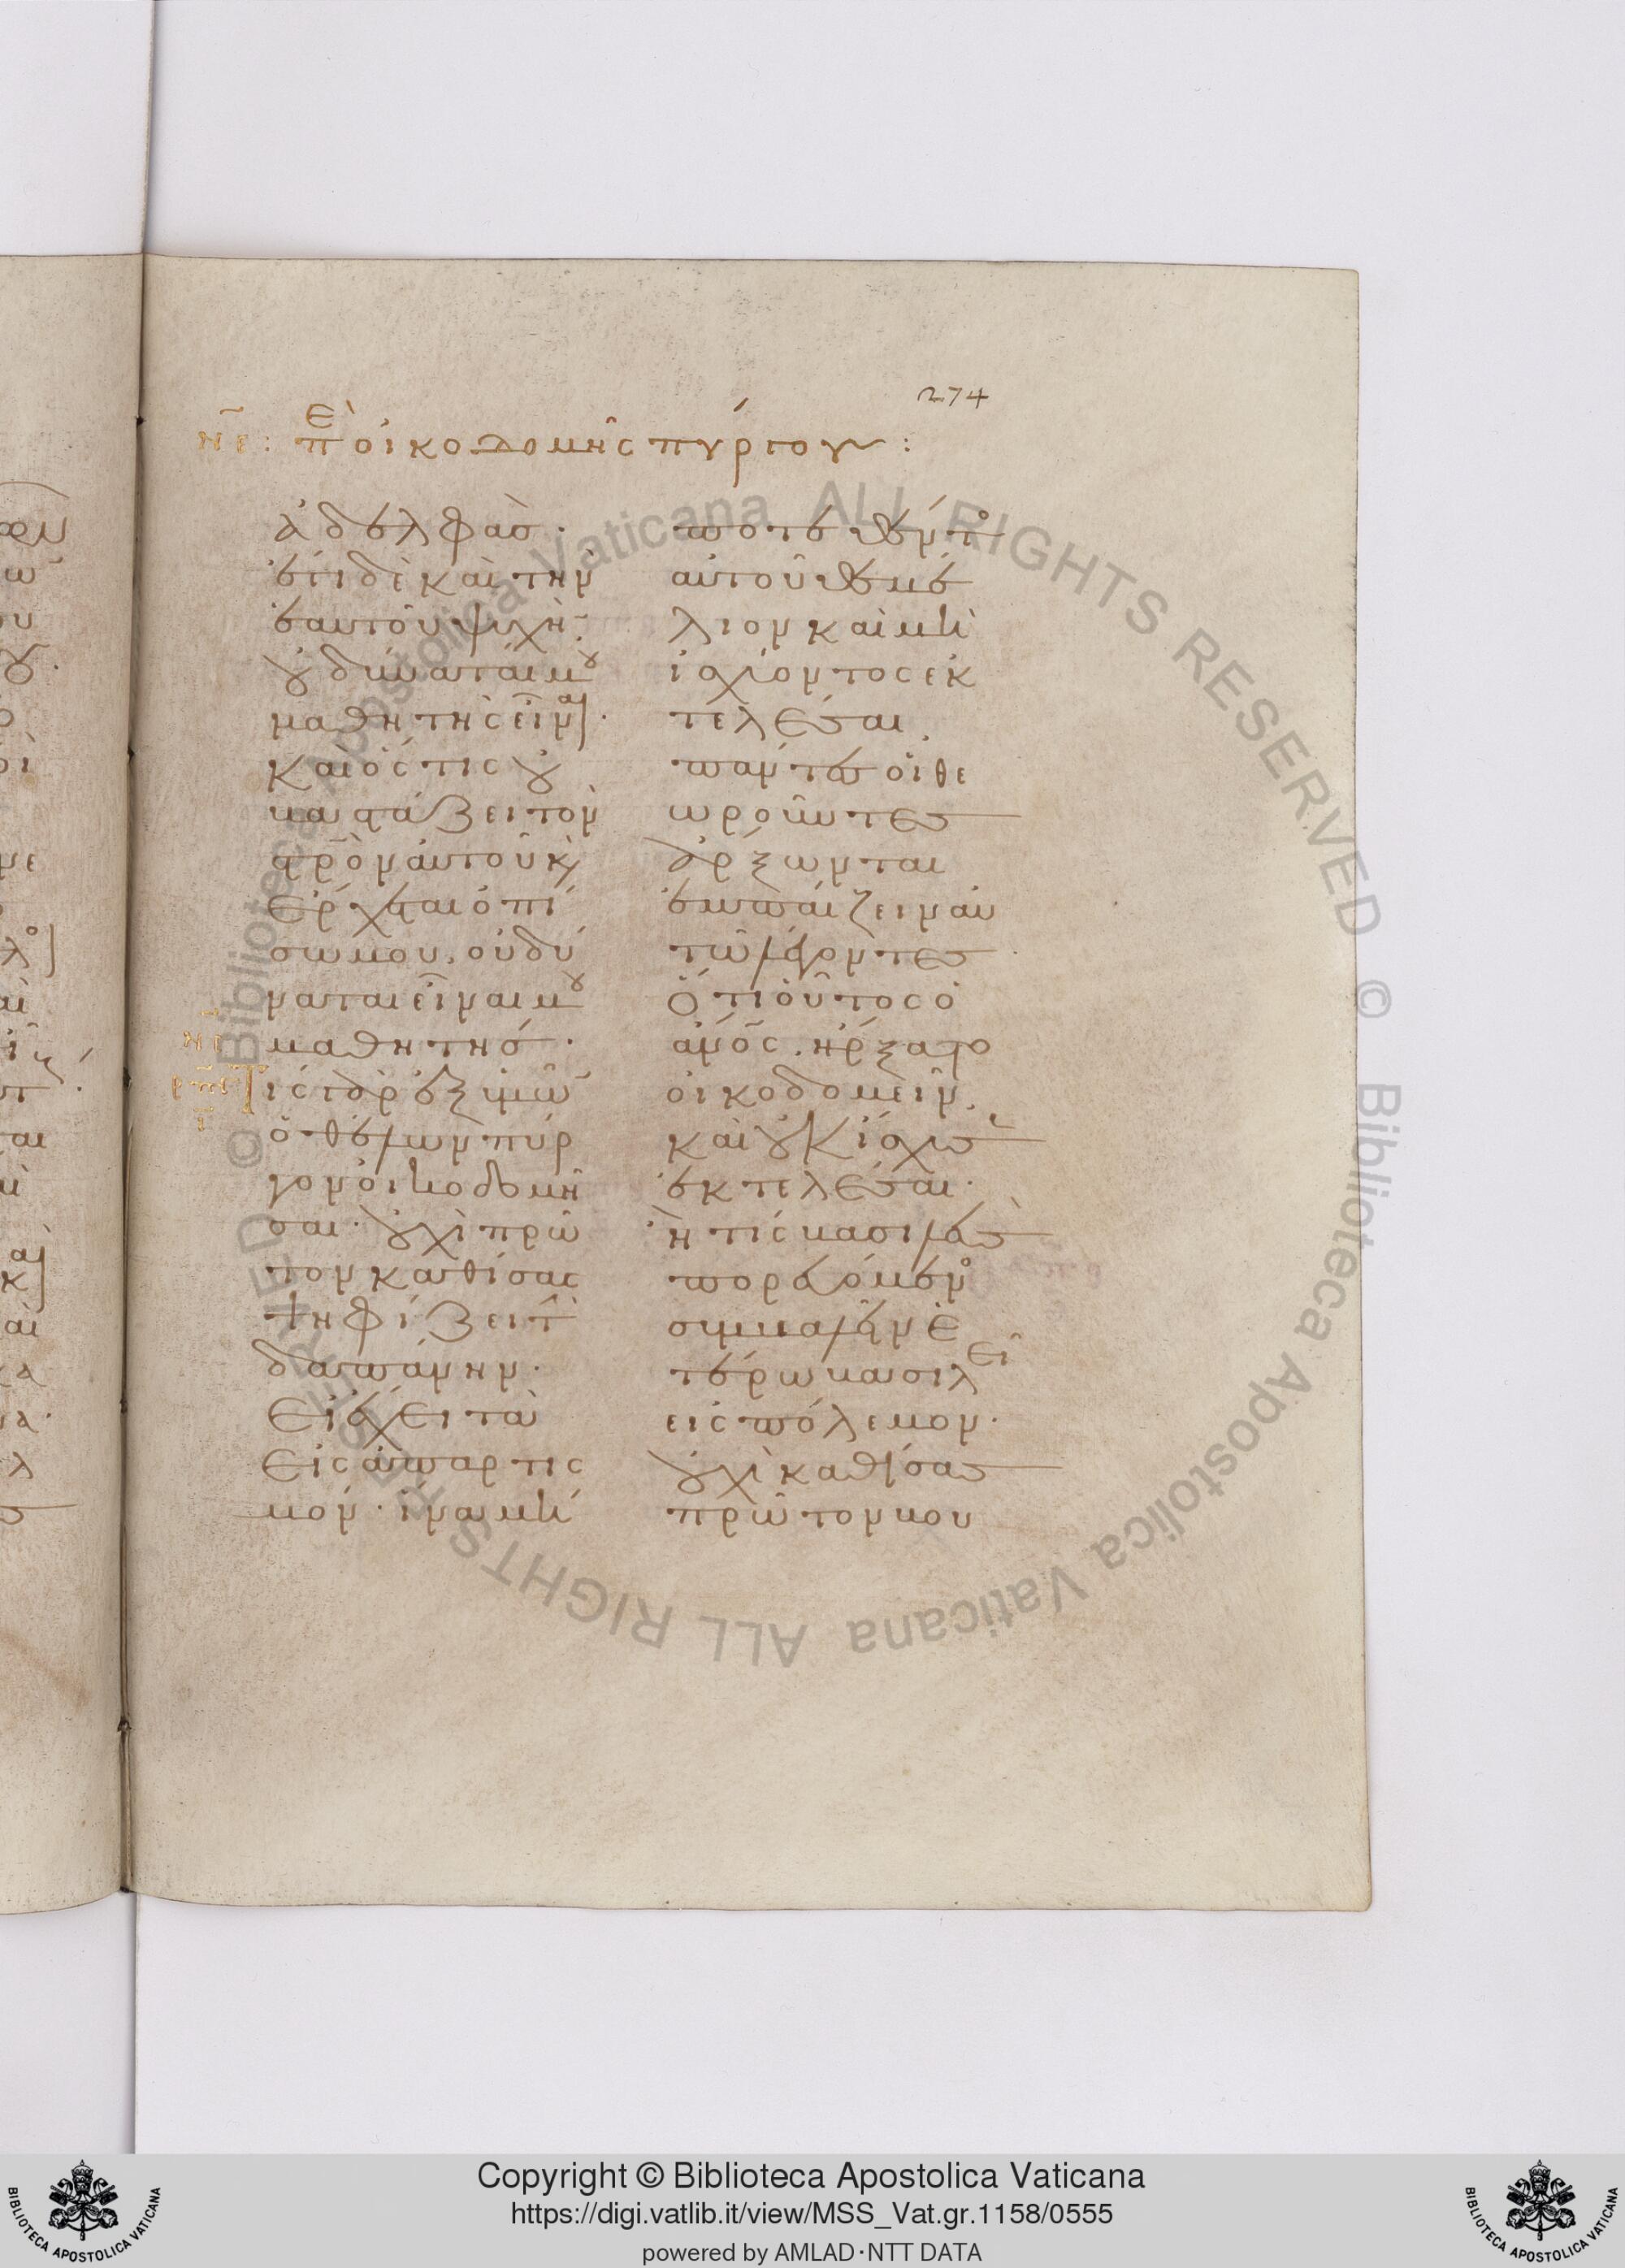 274
νε: Ἐπ οἰκοδομῆς πύργου:
ἀδελφάσ·
ἔτι δὲ καὶ τὴν
ἑαυτοῦ ψυχὴ̅·
οὐ δύναταί μου
μαθητὴς εἶναι·
καὶ ὅστις οὐ
βαστάζει τὸν
σρ̅ὸν αὐτοῦ κ̀
ἔρχεται ὀπί
σω μου, οὐ δύ
ναται εἶναι μου
μαθητής·
Τίς γὰρ ἐξ ὑμῶ̅
ὁ θέλων πύρ
γον οἰκοδομῆ
σαι· οὐχὶ πρῶ
τον καθίσας
ψηφίζει τ̀
δαπάνην·
εἰ ἔχει τὰ
εἰς ἀπαρτισ
μόν· ἵνα μή
ποτε θέντο
αὐτοῦ θεμέ
λιον καὶ μὴ
ἰσχύοντος ἐκ
τελέσαι,
πάντες οἱ θε
ωροῦντες
ἄρξωνται
ἐμπαίζειν αὐ
τῶ λέγοντες·
Ὅτι οὗτος ὁ
ἄν̅ος, ἤρξατο
οἰκοδομεῖν,
καὶ οὐκ ἴσχυσε̅
ἐκτελέσαι·
ἢ τίς βασιλεὺς
πορευόμενο
συμβαλεῖν ἑ
τέρω βασιλεῖ
εἰς πόλεμον·
οὐχὶ καθίσας
πρῶτον βου
Copyright © Biblioteca Apostolica Vaticana
https://digi.vatlib.it/view/MSS_Vat.gr.1158/0555
powered by AMLAD·NTT DATA
BIBLIOTECA APOSTOLICA VATICANA
BIBLIOTECA APOSTOLICA VATICANA
© Biblioteca Apostolica Vaticana ALL RIGHTS RESERVED
© Biblioteca Apostolica Vaticana ALL RIGHTS RESERVED